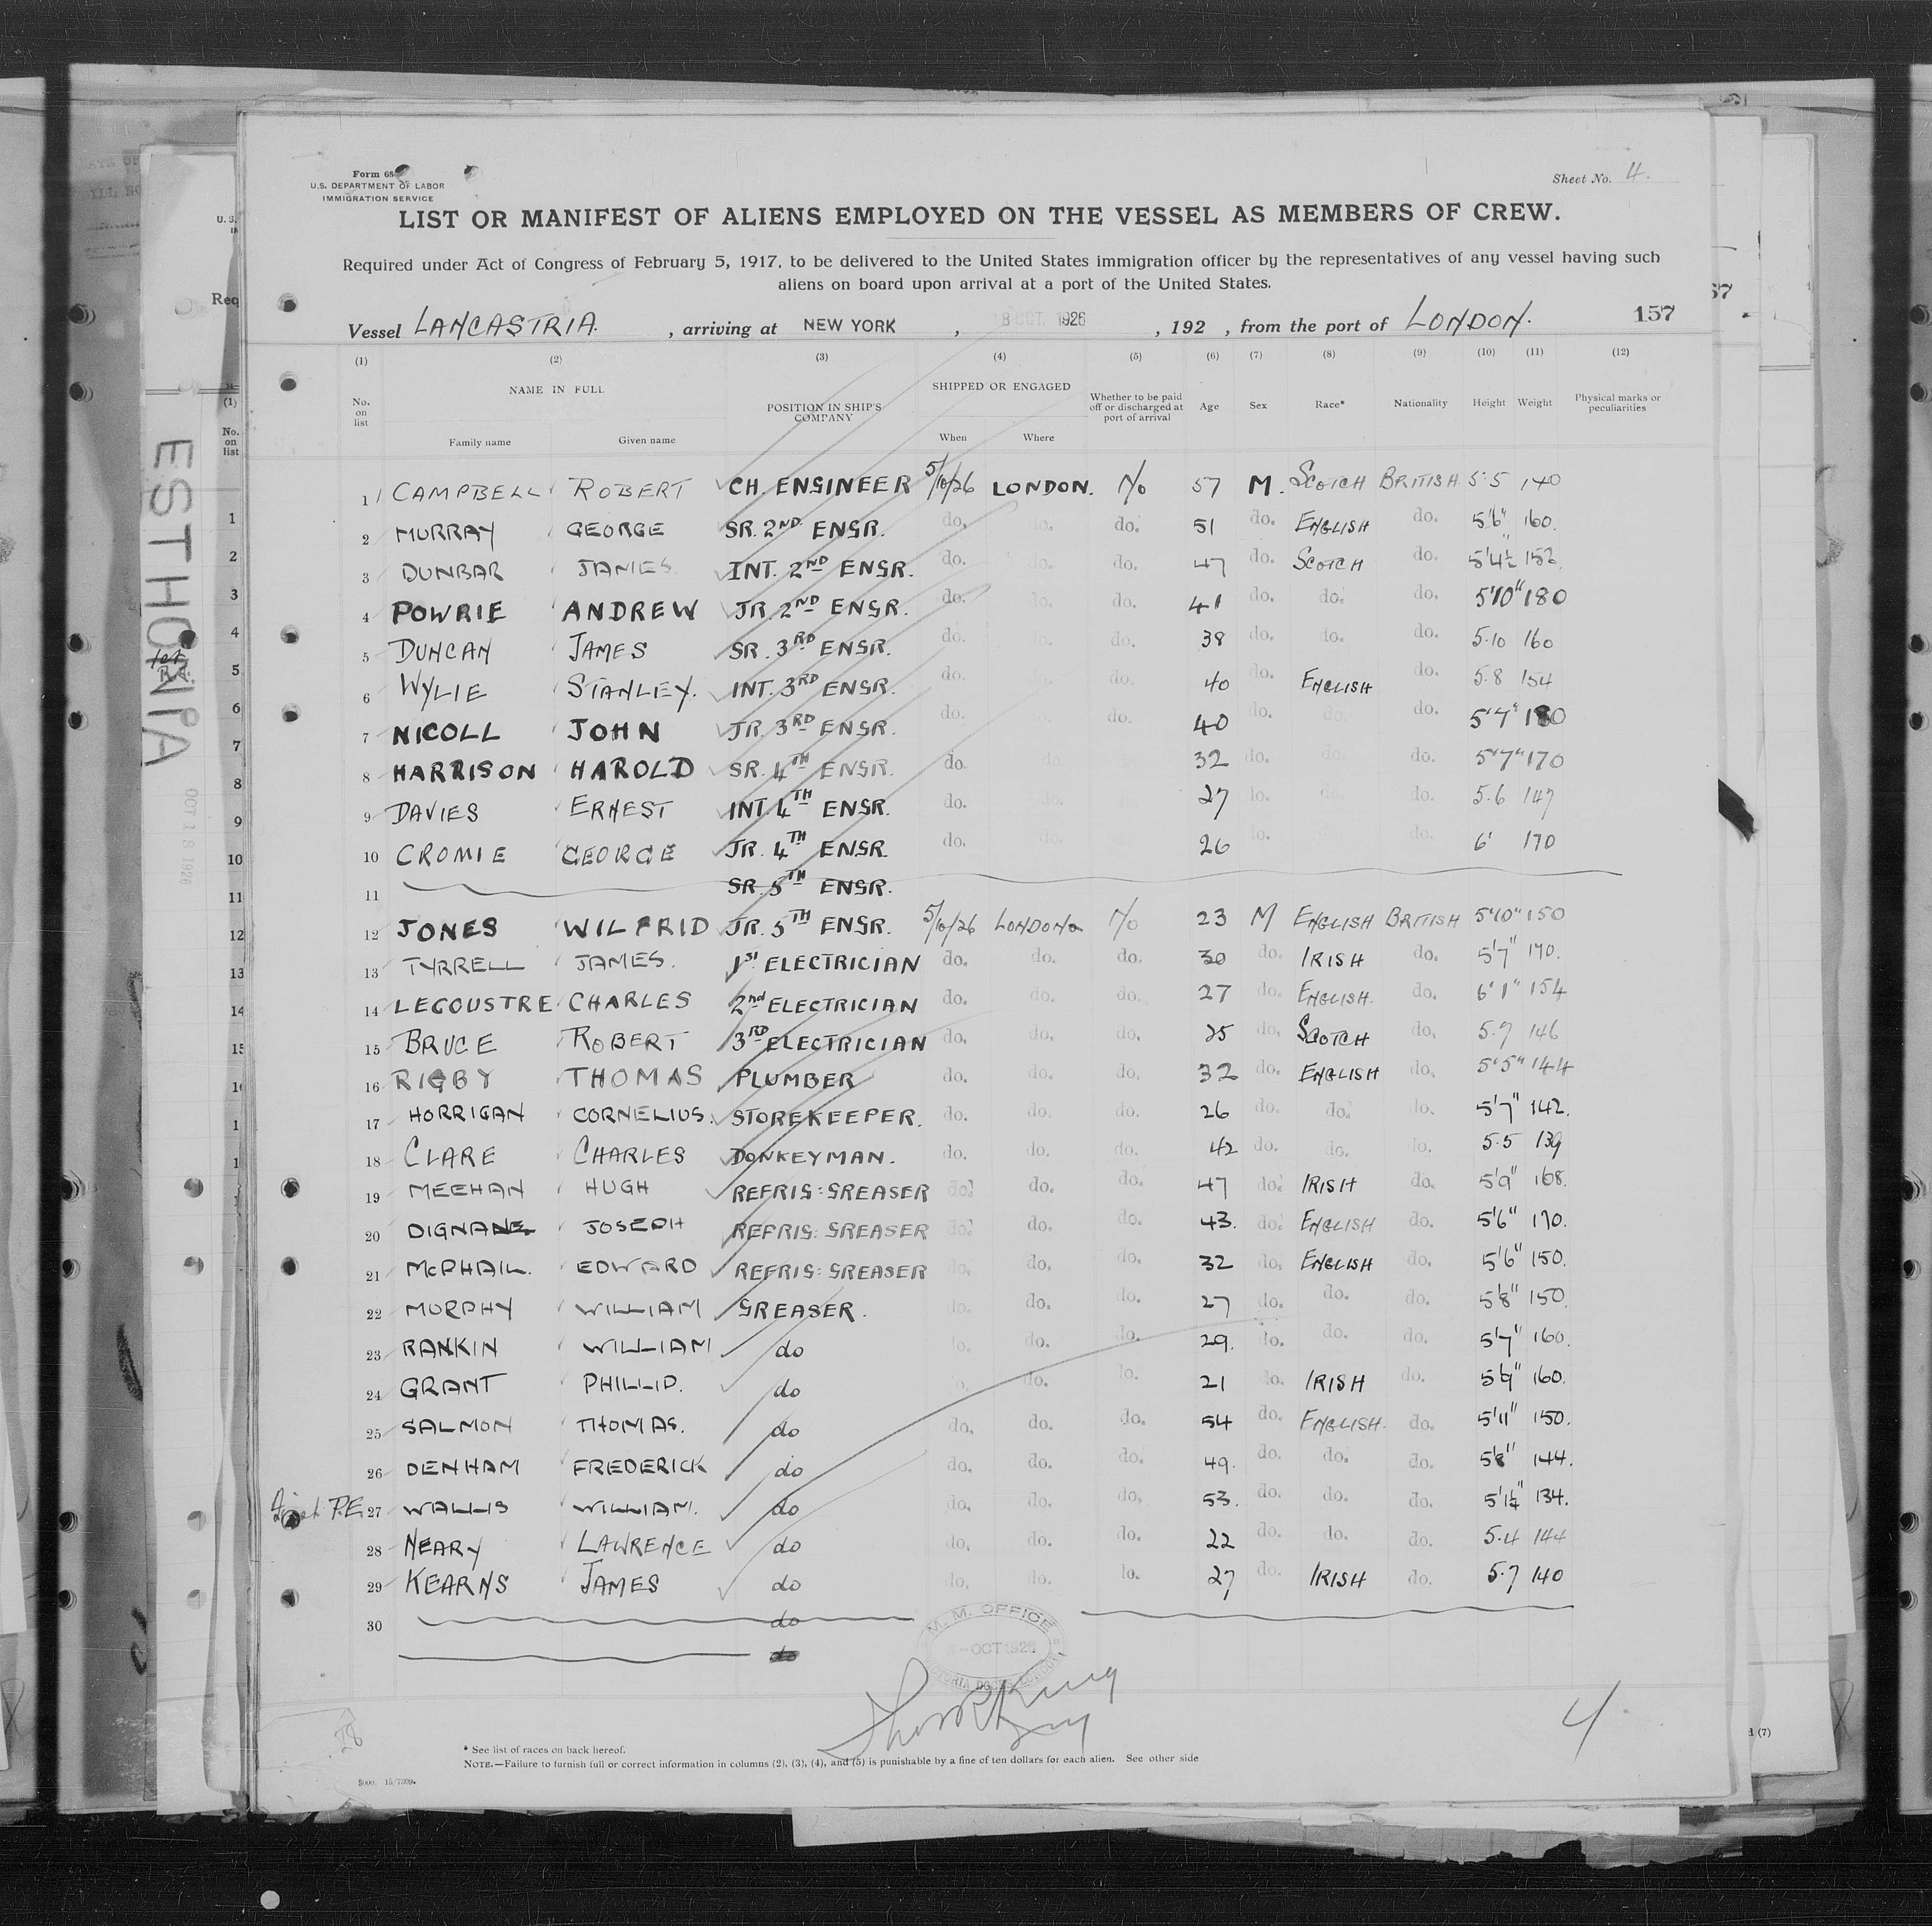 Form 68
U.S. DEPARTMENT OF LABOR
IMMIGRATION SERVICE
Sheet No. 4.
LIST OR MANIFEST OF ALIENS EMPLOYED ON THE VESSEL AS MEMBERS OF CREW.
Required under Act of Congress of February 5, 1917, to be delivered to the United States immigration officer by the representatives of any vessel having such
aliens on board upon arrival at a port of the United States.
Vessel LANCASTRIA. , arriving at NEW YORK , 18 OCT. 1926 , 192 , from the port of LONDON. 157
(1) (2) (3) (4) (5) (6) (7) (8) (9) (10) (11) (12)
No. on list NAME IN FULL POSITION IN SHIP'S COMPANY SHIPPED OR ENGAGED Whether to be paid off or discharged at port of arrival Age Sex Race* Nationality Height Weight Physical marks or peculiarities
Family name Given name When Where
1 CAMPBELL ROBERT CH. ENGINEER 5/10/26 LONDON. No 57 M. SCOTCH BRITISH 5.5 140
2 MURRAY GEORGE SR. 2ND ENGR. do. do. do. 51 do. ENGLISH do. 5'6" 160.
3 DUNBAR JAMES INT. 2ND ENGR. do. do. do. 47 do. SCOTCH do. 5'4½" 152.
4 POWRIE ANDREW JR. 2ND ENGR. do. do. do. 41 do. do. do. 5'10" 180
5 DUNCAN JAMES SR. 3RD ENGR. do. do. do. 38 do. do. do. 5.10 160
6 WYLIE STANLEY. INT. 3RD ENGR. do. do. do. 40 do. ENGLISH do. 5.8 154
7 NICOLL JOHN JR. 3RD ENGR. do. do. do. 40 do. do. do. 5'7" 180
8 HARRISON HAROLD SR. 4TH ENGR. do. do. 32 do. do. do. 5'7" 170
9 DAVIES ERNEST INT. 4TH ENGR. do. do. 27 do. do. do. 5.6 147
10 CROMIE GEORGE JR. 4TH ENGR. do. 26 do. do. 6' 170
11 SR. 5TH ENGR.
12 JONES WILFRID JR. 5TH ENGR. 5/10/26 LONDON No 23 M ENGLISH BRITISH 5'10" 150
13 TYRRELL JAMES. 1ST ELECTRICIAN do. do. do. 30 do. IRISH do. 5'7" 170.
14 LEGOUSTRE CHARLES 2nd ELECTRICIAN do. do. do. 27 do. ENGLISH. do. 6'1" 154
15 BRUCE ROBERT 3RD ELECTRICIAN do. do. do. 25 do. SCOTCH do. 5.7 146
16 RIGBY THOMAS PLUMBER do. do. do. 32 do. ENGLISH do. 5'5" 144
17 HORRIGAN CORNELIUS. STOREKEEPER. do. do. do. 26 do. do. do. 5'7" 142.
18 CLARE CHARLES DONKEYMAN. do. do. do. 42 do. do. do. 5.5 139
19 MEEHAN HUGH REFRIG: GREASER do. do. do. 47 do. IRISH do. 5'9" 168.
20 DIGNANE JOSEPH REFRIG: GREASER do. do. do. 43. do. ENGLISH do. 5'6" 170.
21 McPHAIL. EDWARD REFRIG: GREASER do. do. do. 32 do. ENGLISH do. 5'6" 150.
22 MURPHY WILLIAM GREASER. do. do. do. 27 do. do. do. 5'8" 150.
23 RANKIN WILLIAM do do. do. do. 29. do. do. do. 5'7" 160.
24 GRANT PHILLIP. do do. do. do. 21 do. IRISH do. 5'9" 160.
25 SALMON THOMAS. do do. do. do. 54 do. ENGLISH. do. 5'11" 150.
26 DENHAM FREDERICK do do. do. do. 49. do. do. do. 5'8" 144.
27 WALLIS WILLIAM. do do. do. do. 53. do. do. do. 134.
28 NEARY LAWRENCE do do. do. do. 22 do. do. do. 5.4 144
29 KEARNS JAMES do do. do. do. 27 do. IRISH do. 5.7 140
30 do
do
M. M. OFFICE
OCT 1926
4
28
* See list of races on back hereof.
NOTE.—Failure to furnish full or correct information in columns (2), (3), (4), and (5) is punishable by a fine of ten dollars for each alien. See other side
ESTHONIA
OCT 18 1926